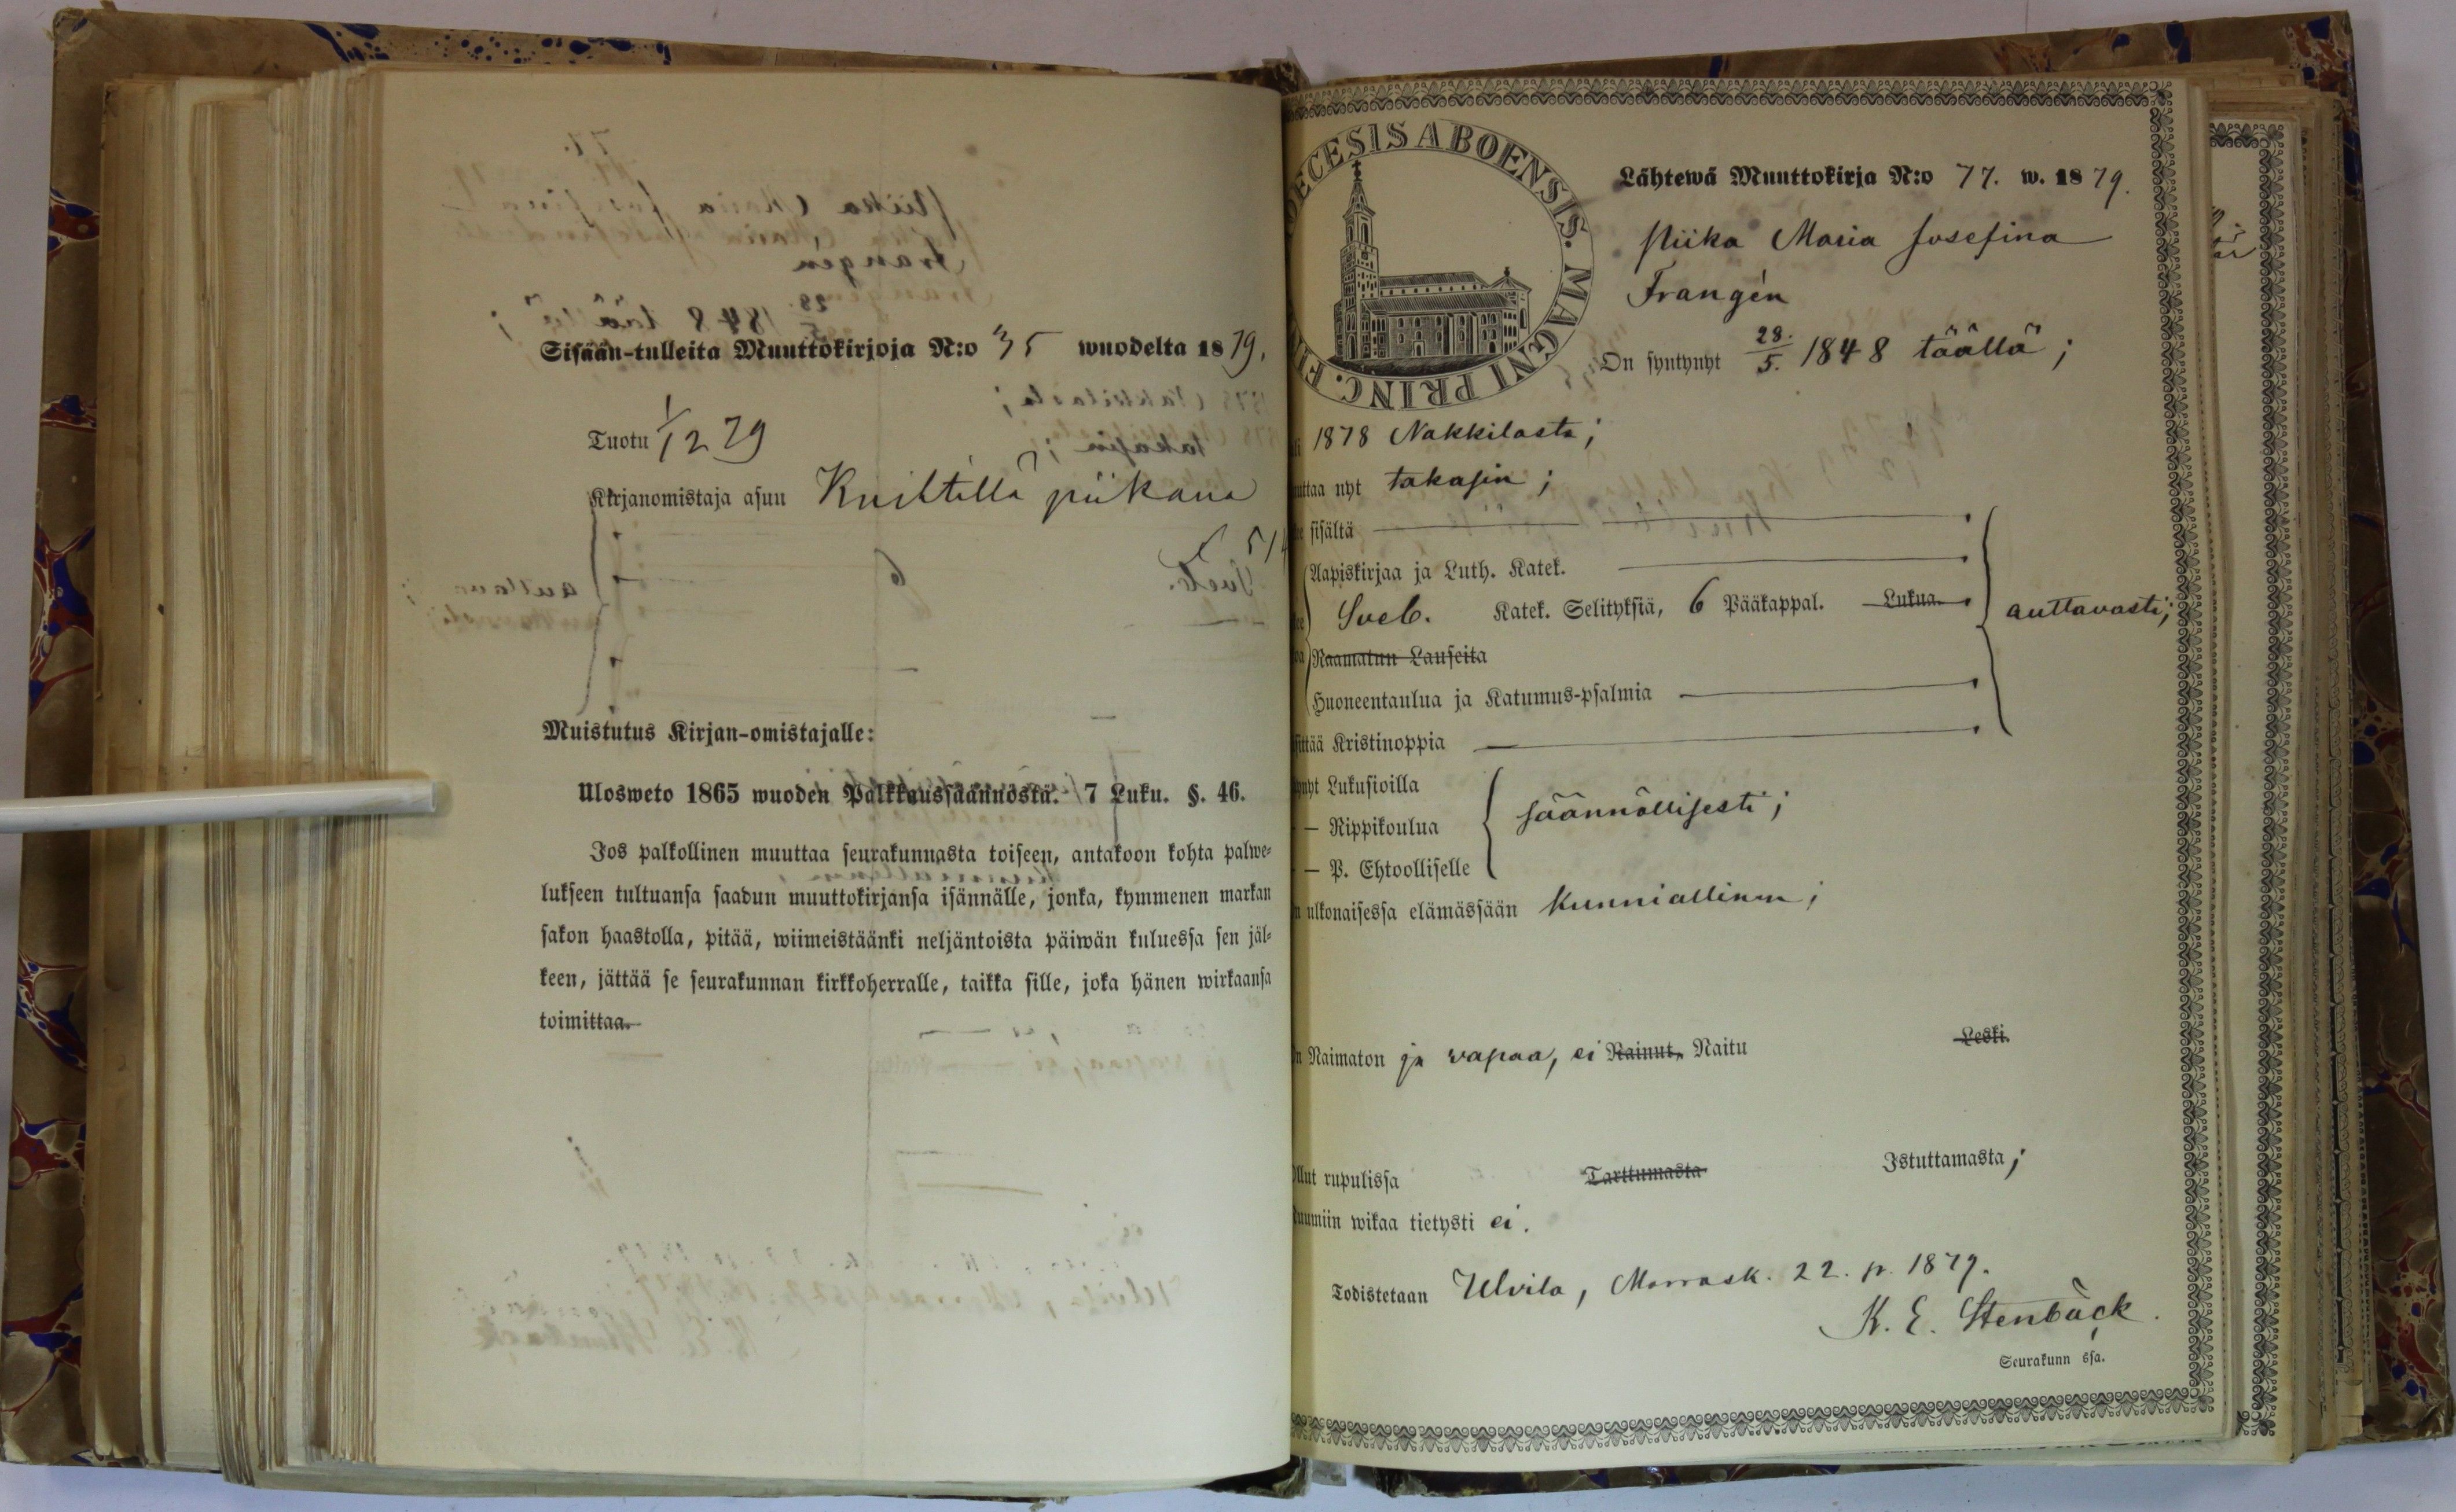 Sisään-tulleita Muuttokirjoja N:o 35 wuodelta 1879.
Tuotu 1/12 79
Kirjanomistaja asuu Knihtilä piikana
514
Muistutus Kirjan-omistajalle:
Ulosweto 1865 wuoden Palkkaussäännöstä. 7 Luku. §. 46.
Jos palkollinen muuttaa seurakunnasta toiseen, antakoon kohta palwe=
lukseen tultuansa saadun muuttokirjansa isännälle, jonka, kymmenen markan
sakon haastolla, pitää, wiimeistäänki neljäntoista päiwän kuluessa sen jäl=
keen, jättää se seurakunnan kirkkoherralle, taikka sille, joka hänen wirkaansa
toimittaa.
ECESIS ABOENSIS. MAGNI PRINC. FI
Lähtewä Muuttokirja N:o 77. w. 1879.
Piika Maria Josefina
Frangén
On syntynyt 28./5. 1848 täällä;
1878 Nakkilasta;
uttaa nyt takasin;
sisältä
Aapiskirjaa ja Luth. Katek.
Sveb. Katek. Selityksiä, 6 Pääkappal. Lukua. auttavasti;
Raamatun Lauseita
Huoneentaulua ja Katumus-psalmia
sittää Kristinoppia
ynyt Lukusioilla
— Rippikoulua säännöllisesti;
— P. Ehtoolliselle
n ulkonaisessa elämässään kunniallinen;
n Naimaton ja vapaa, ei Nainut, Naitu Leski.
Ollut rupulissa Tarttumasta Istuttamasta;
Ruumiin wikaa tietysti ei.
Todistetaan Ulvila, Marrask. 22. p. 1879.
K. E. Stenbäck.
Seurakunn ssa.